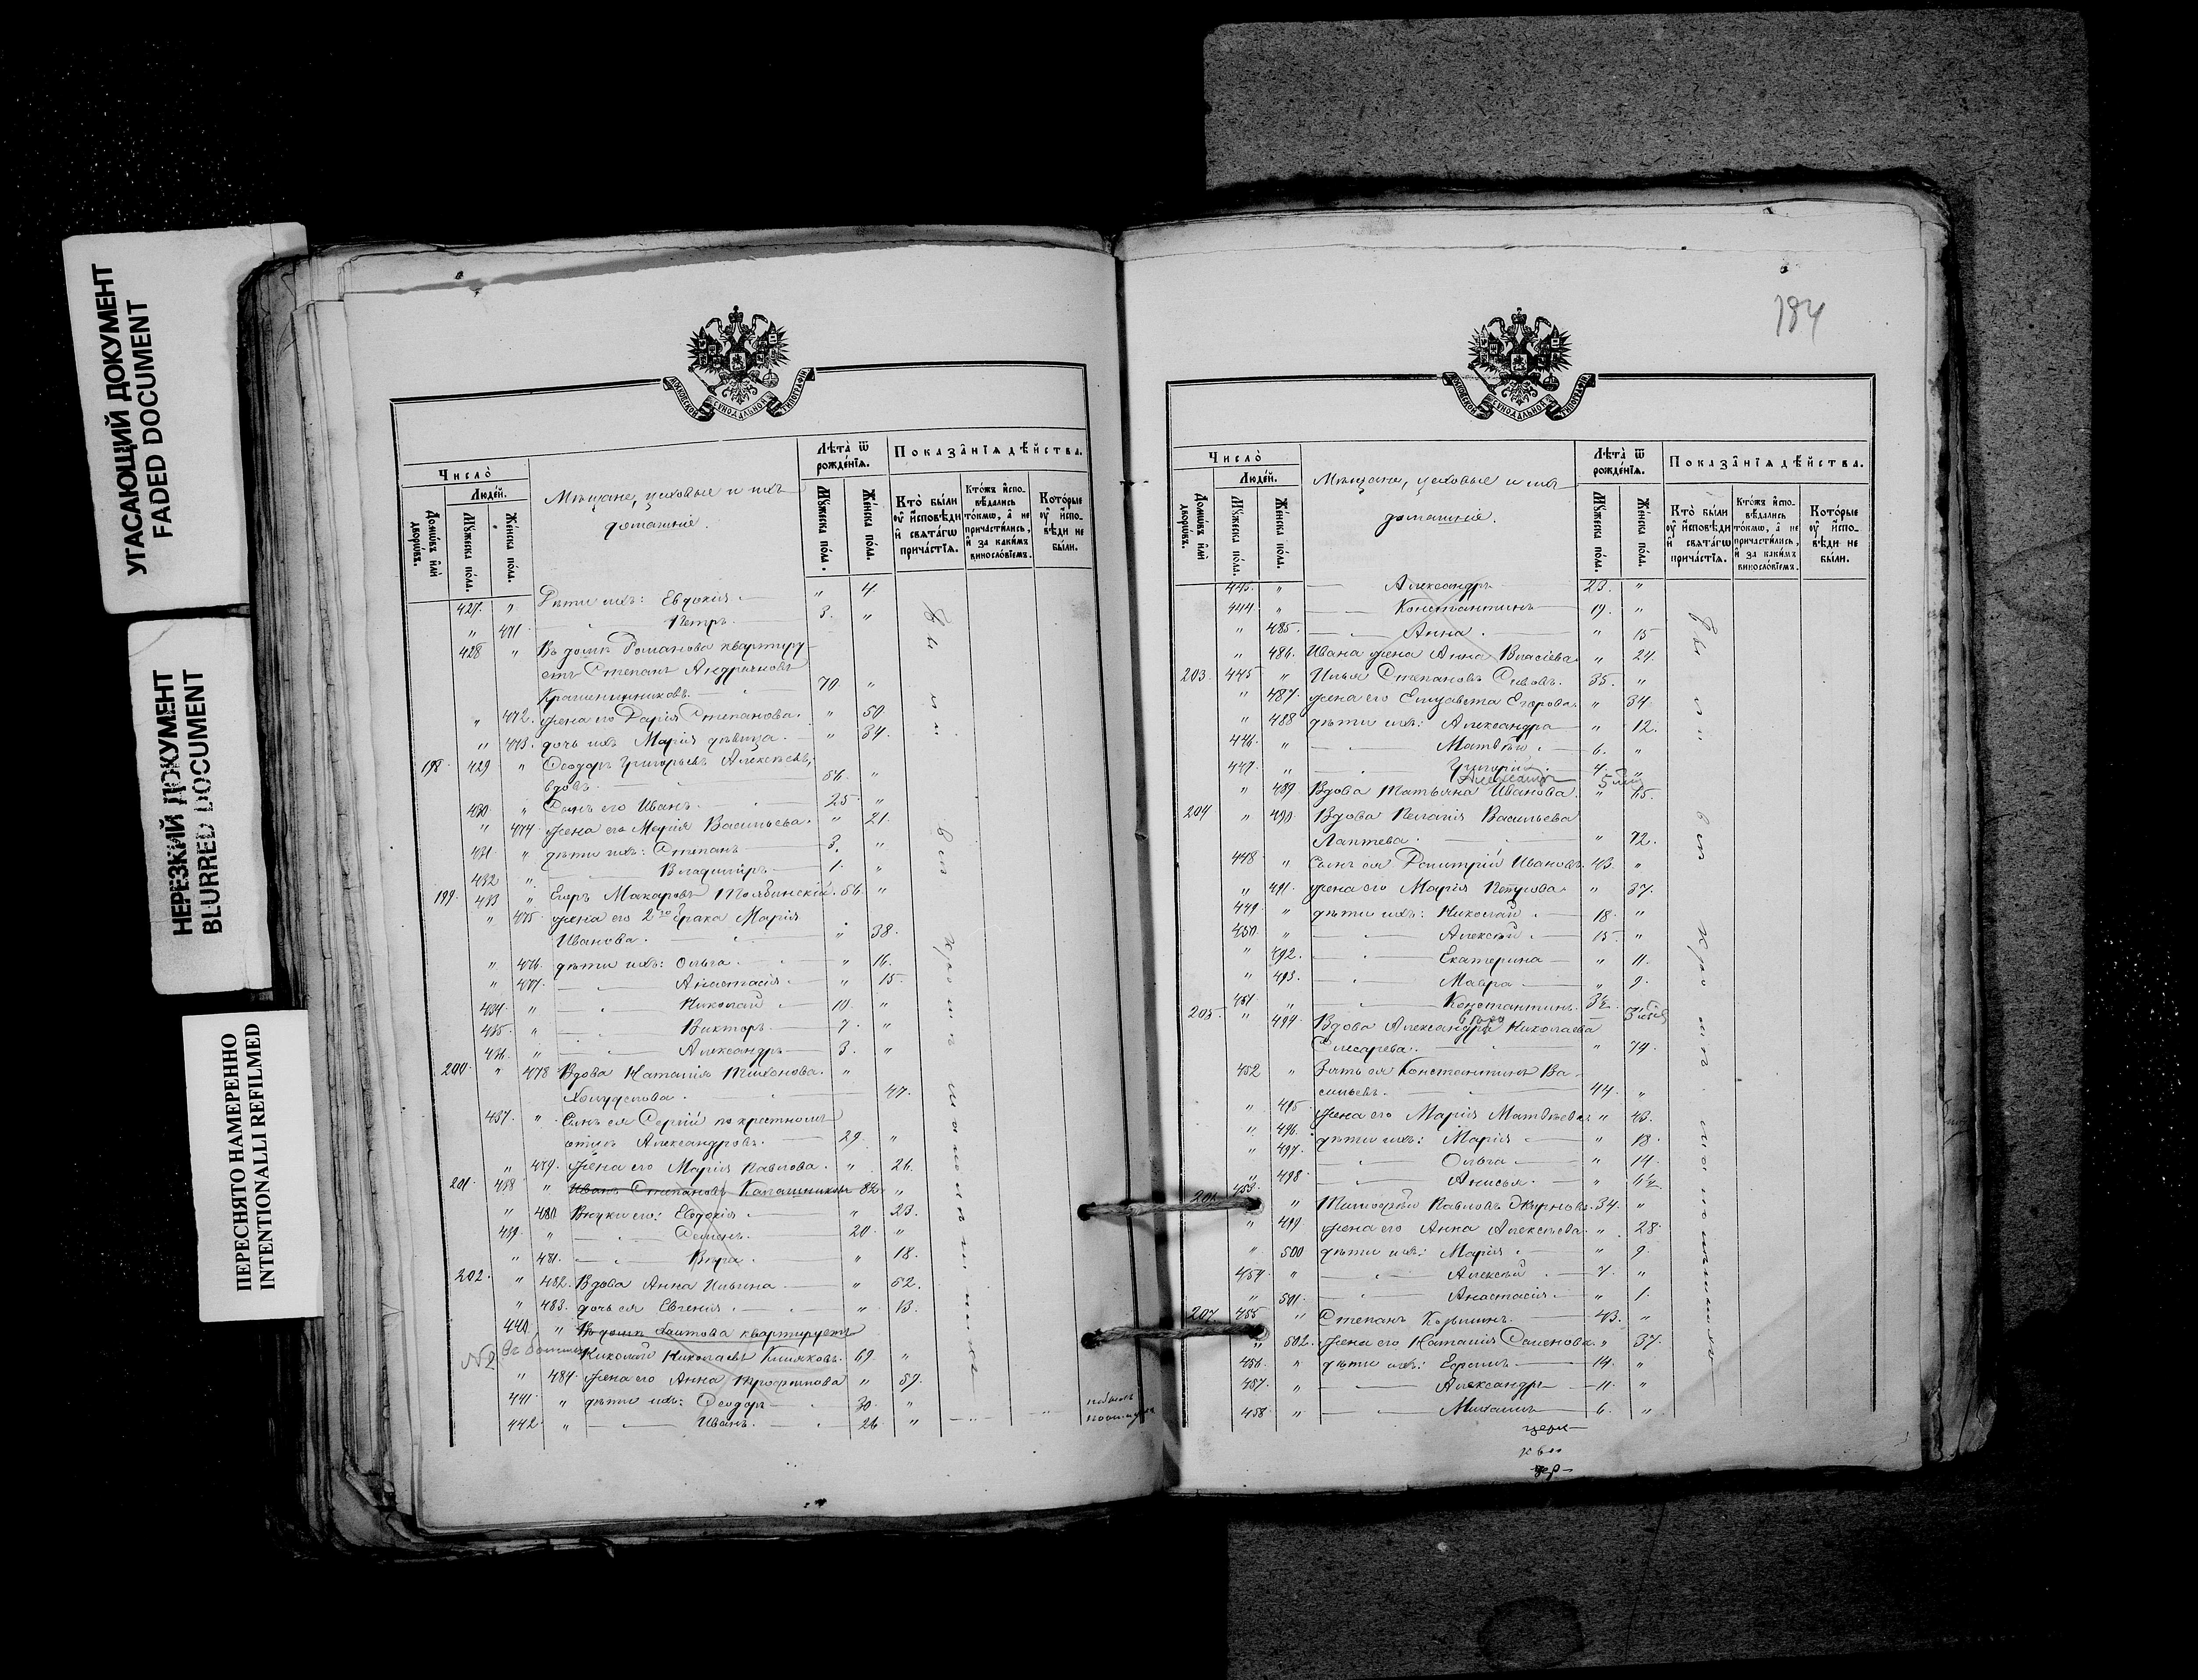 УГАСАЮЩИЙ ДОКУМЕНТ
FADED DOCUMENT
НЕРЕЗКИЙ ДОКУМЕНТ
BLURRED DOCUMENT
ПЕРЕСНЯТО НАМЕРЕННО
INTENTIONALLI REFILMED
МОСКОВСКОЙ СѴНОДАЛЬНОЙ ТИПОГРАФІИ
Число̀
Люде́й.
Домѡ́въ и҆лѝ дворѡ́въ.
Мꙋ́жеска по́ла.
Же́нска по́ла.
Мѣщане, цеховые и ихъ
домашніе.
Лѣ́та ѿ рожде́нїѧ.
Мꙋ́жеска по́ла.
Же́нска по́ла.
Показа̑нїѧ дѣ́йства.
Кто̀ бы́ли ᲂу҆ и҆сповѣ́ди и҆ свѧта́гѡ прича́стїѧ.
Кто́жъ и҆спо-вѣ́дались то́кмѡ, а҆ не причасти́лись, и҆ за каки́мъ виносло́вїемъ.
Кото́рые ᲂу҆ и҆спо-вѣ́ди не бы́ли.
427. " Дѣти ихъ: Евдокія " 4
" 471 Петръ 3. "
428 " Въ домѣ Романова квартиру-
етъ Степанъ Андрияновъ
Крашенинниковъ. 70 "
" 472. жена его Дарія Степанова. " 50
" 473. дочь ихъ Марія дѣвица. " 34.
198. 429 " Ѳеодоръ Григорьевъ Алексѣевъ,
вдовъ. 54. "
430 " Сынъ его Иванъ. 25. "
" 474. жена его Марія Васильева. " 21.
431. " дѣти ихъ: Степанъ 3. "
432 " Владиміръ 1. "
199. 433 " Егоръ Макаровъ 54. "
" 475. жена его 2го брака Марія
Иванова. " 38.
" 476. дѣти ихъ: Ольга " 16.
" 477. Анастасія " 15.
434. " Николай 10. "
435. " Викторъ 7. "
436. " Александръ 3. "
200. " 478 Вдова Наталія Тихонова. "
47.
437. " Сынъ ея Сергій по крестному
отцу Александровъ. 29. "
" 479. жена его Марія Павлова. " 26.
201. 438 " Иванъ Степановъ Калашников 82. "
" 480 Внуки его: Евдокія " 23.
439. " Семенъ. 20. "
" 481. Вѣра " 18.
202. " 482. Вдова Анна Ильина " 52.
" 483. дочь ея Евгенія " 13.
440 " Въ домѣ квартируетъ
Николай Николаевъ Климковъ. 69. "
" 484. жена его Анна Трофимова " 57.
441. " дѣти ихъ: Ѳеодоръ 30. "
442. " Иванъ. 26 "
184
МОСКОВСКОЙ СѴНОДАЛЬНОЙ ТИПОГРАФІИ
Число̀
Люде́й.
Домѡ́въ и҆лѝ дворѡ́въ.
Мꙋ́жеска по́ла.
Же́нска по́ла.
Мѣщане, цеховые и ихъ
домашніе.
Лѣ́та ѿ рожде́нїѧ.
Мꙋ́жеска по́ла.
Же́нска по́ла.
Показа̑нїѧ дѣ́йства.
Кто̀ бы́ли ᲂу҆ и҆сповѣ́ди и҆ свѧта́гѡ прича́стїѧ.
Кто́жъ и҆спо-вѣ́дались то́кмѡ, а҆ не причасти́лись, и҆ за каки́мъ виносло́вїемъ.
Кото́рые ᲂу҆ и҆спо-вѣ́ди не бы́ли.
" Александръ 23. "
444. " Константинъ 19. "
" 485. Анна. " 15
" 486. Ивана жена Анна Власіева " 24.
203. 445 " Илья Степановъ Сивовъ. 35. "
" 487. жена его Елизавета Егорова. " 34.
" 488 дѣти ихъ: Александра " 12.
446. " Матвѣй 6. "
447. " Григорій 4. "
" 489 Вдова Татьяна Иванова. " 65.
204 " 490. Вдова Пелагія Васильева
Лаптева. " 72.
448. " Сынъ ея Димитрій Ивановъ. 43. "
" 491. жена его Марія Петрова. " 37.
449. " дѣти ихъ: Николай 18. "
450. " Алексѣй 15. "
" 492. Екатерина " 11.
" 493. Мавра " 9.
451 " Константинъ. 3½. "
205. " 494. Вдова Александра Николаева
Слесарева. " 74.
452 " Зять ея Константинъ Ва-
сильевъ. 44. "
" 495. жена его Марія Матвѣева " 43.
" 496. дѣти ихъ: Марія " 18.
" 497. Ольга " 14.
" 498. Анисья
453. " Тимоѳей Павловъ 34. "
" 499. жена его Анна Алексѣева. " 28.
" 500 дѣти ихъ: Марія " 9.
454. " Алексѣй 7. "
" 501. Анастасія " 1.
207. 455 " Степанъ 43. "
" 502. жена его Наталія Семенова. " 37.
456. " дѣти ихъ: Ефимъ 14. "
457. " Александръ 11. "
458. " Михаилъ 6. "